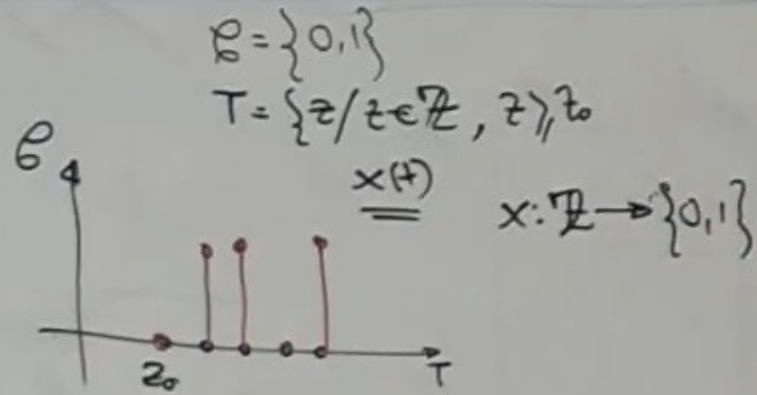 𝒞 = {0,1}
T = {z/z∈ℤ, z⩾z₀
𝒞
x(t)
x: ℤ → {0,1}
z₀
T